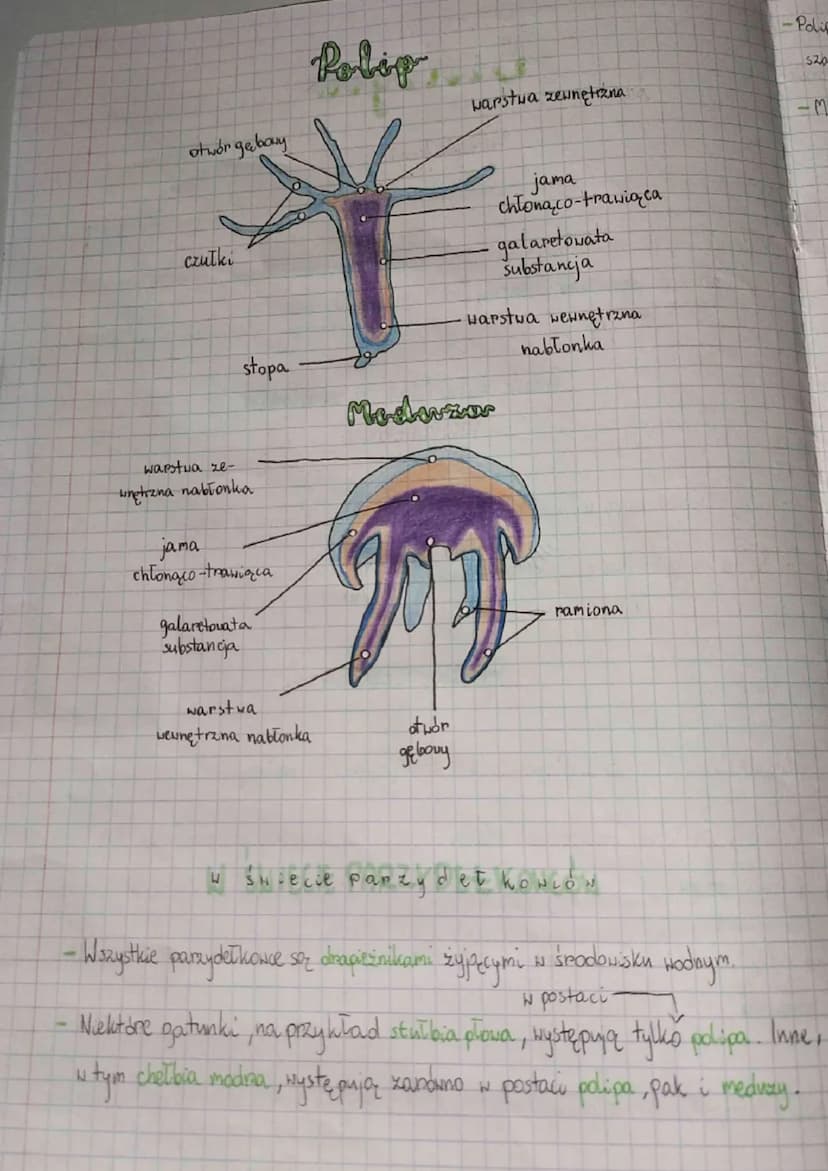 Polip
warstwa zewnętrzna
otwór gębowy
jama
chłonąco-trawiąca
galaretowata
substancja
czułki
warstwa wewnętrzna
nabłonka
stopa
Meduza
warstwa ze-
wnętrzna nabłonka
jama
chłonąco-trawiąca
galaretowata
substancja
ramiona
warstwa
wewnętrzna nabłonka
otwór
gębowy
W świecie parzydełkowców
- Wszystkie parzydełkowce są drapieżnikami żyjącymi w środowisku wodnym.
w postaci
- Niektóre gatunki, na przykład stułbia płowa, występują tylko polipa. Inne,
w tym chełbia modra, występują zarówno w postaci polipa, jak i meduzy.